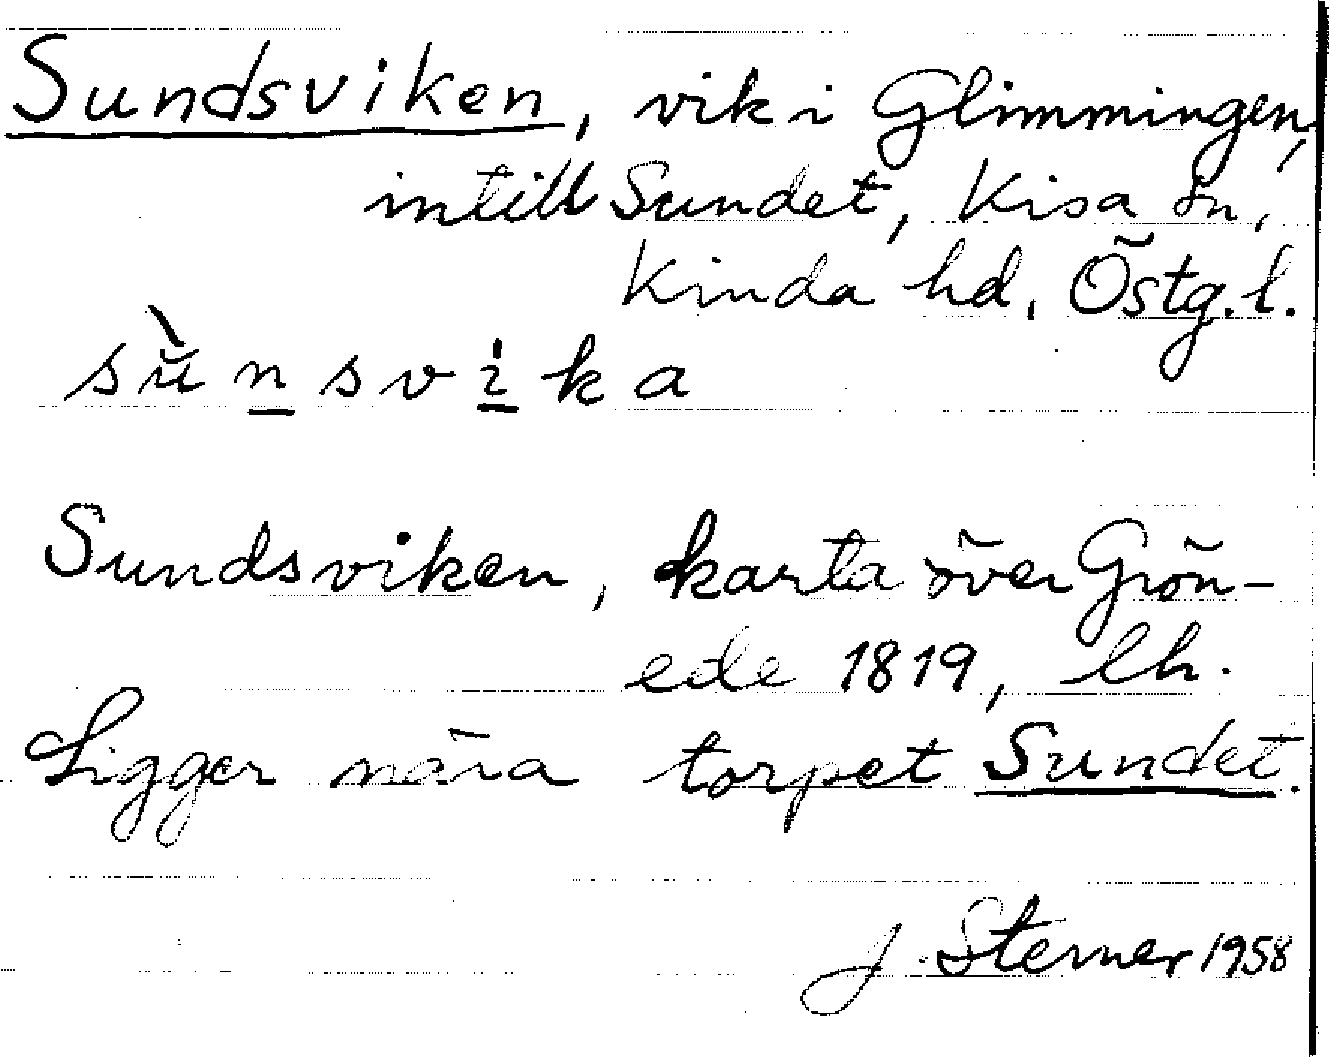 Sundsviken, vik i Glimmingen,
intill Sundet, Kisa sn,
Kinda hd, Östg. l.
sùnsvika
Sundsviken, karta över Grön-
ede 1819, lh.
Ligger nära torpet Sundet.
J. Sterner 1958